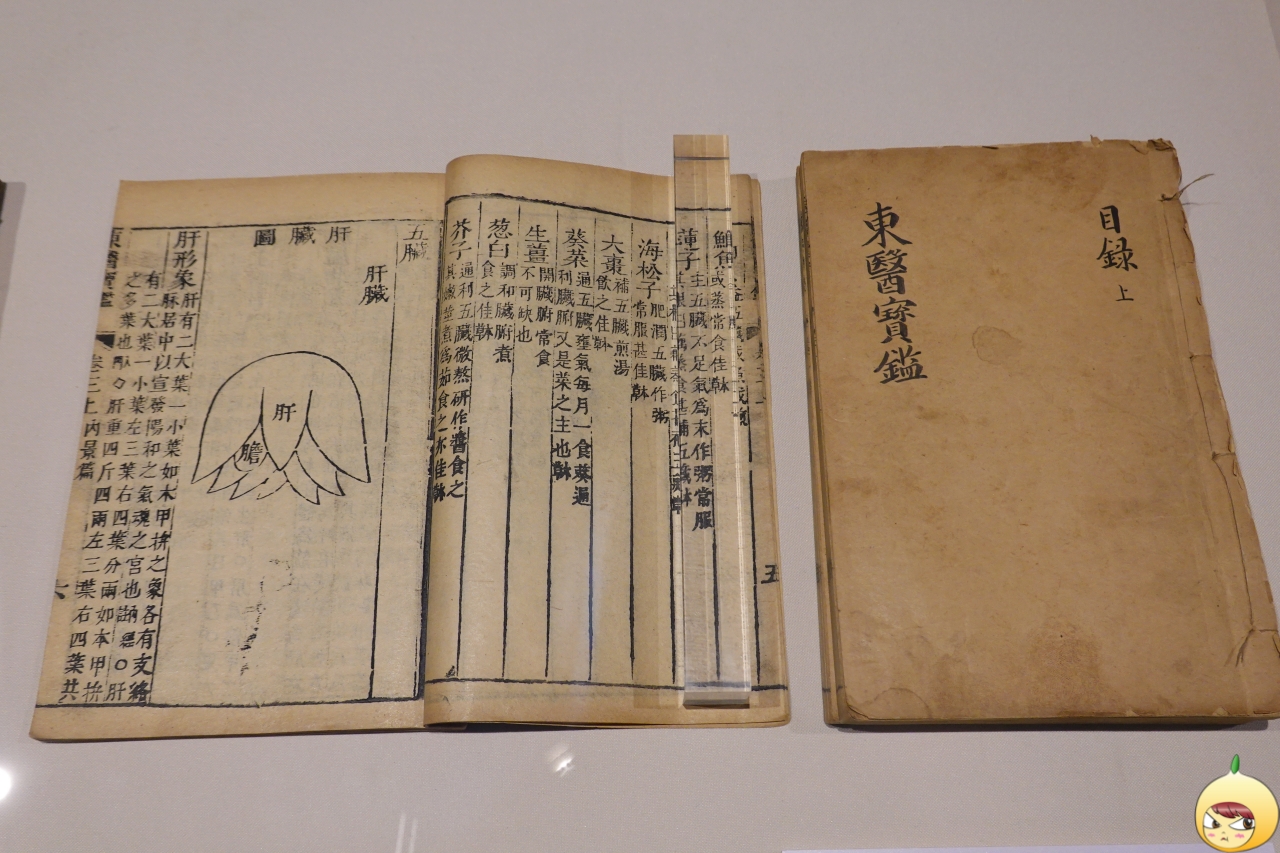 目録
上
東醫寶鑑
五
鯽魚
或蒸常食佳
蓮子
主五臟不足氣爲末作粥常服
海松子
肥潤五臟作粥
常服甚佳
大棗
補五臟煎湯
飲之佳
葵菜
通五臟壅氣每月一食葵通
利臟腑又是菜之主也
生薑
開臟腑常食
不可缺也
葱白
調和臟腑煮
食之佳
芥子
通利五臟微熬研作醬食之
煮爲茹食之亦佳
五臟
肝臟
肝臟圖
肝
膽
肝形象
肝有二大葉一小葉如木甲拚之象各有支絡
脉居中以宣發陽和之氣魂之宮也
肝
有二大葉一小葉左三葉右四葉分兩如木甲拚
之多葉也
肝重四斤四兩左三葉右四葉共
東醫寶鑑
卷三上 內景篇
六